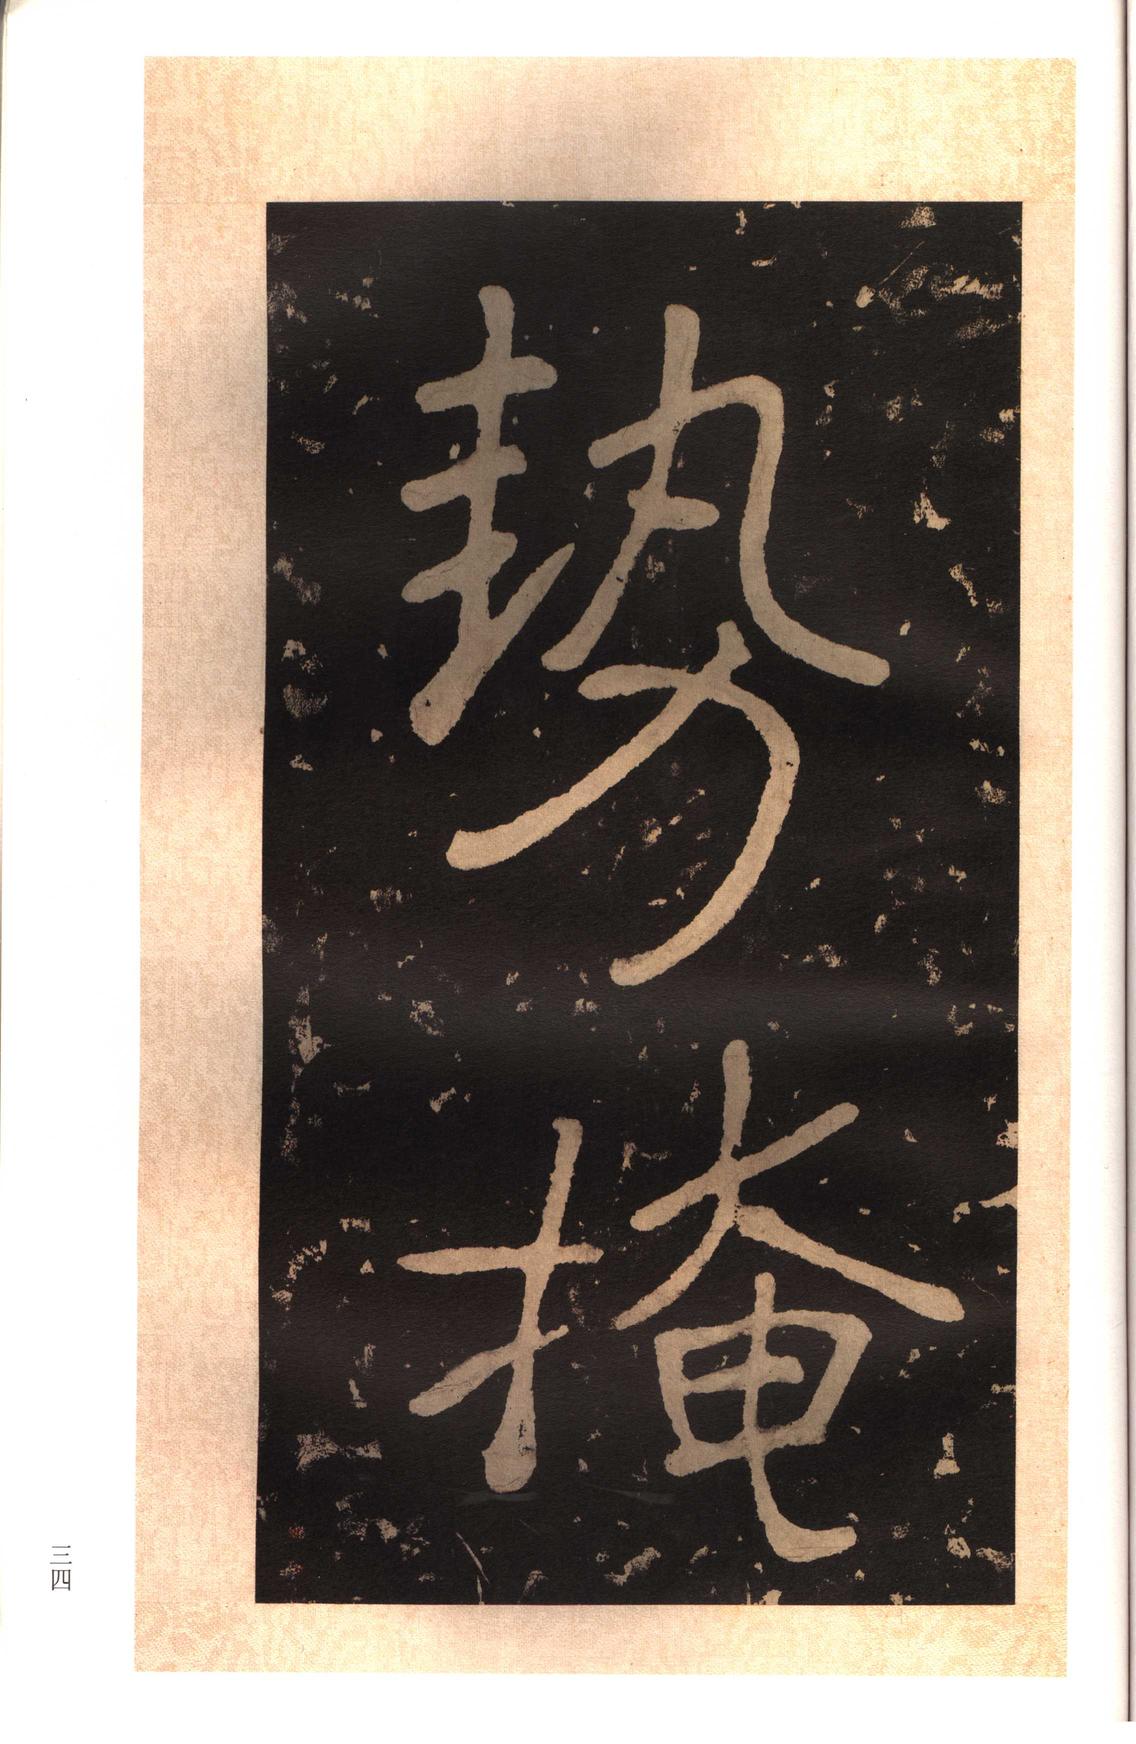 勢掩
三四